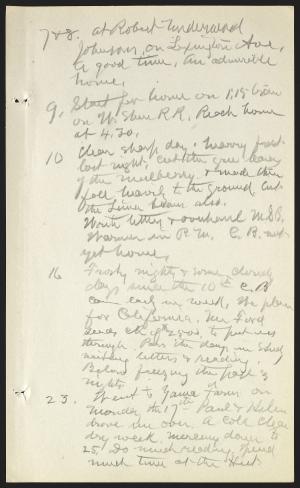 7 & 8. at Robert Underwood
Johnsons, on Lexington Ave.
A good time, An admirable
home.
9. Start for home on 1,15 train
on W. Shore R.R. Reach home
at 4.30.
10 Clear sharp day; heavy frost
last night, cut the green leaves
of the mulberry & made them
fall heavily to the ground, Cut
the Lima beans also.
Write letters & overhaul M.S.S.
Warmer in P.M. C.B. not
yet home.
16 Frosty nights & some cloudy
days since the 10th C.B
came early in week, We plan
for California. Mr Ford
sends ck of $2500, to put us
through. Pass the days in Study
writing letters & reading.
Below freezing the past 2
nights.
23. Went to Yama Farm on
Monday the 17th Paul & Helen
drove me over. A cold clear
dry week. mercury down to
25, Do much reading, Spend
much time at the Hut